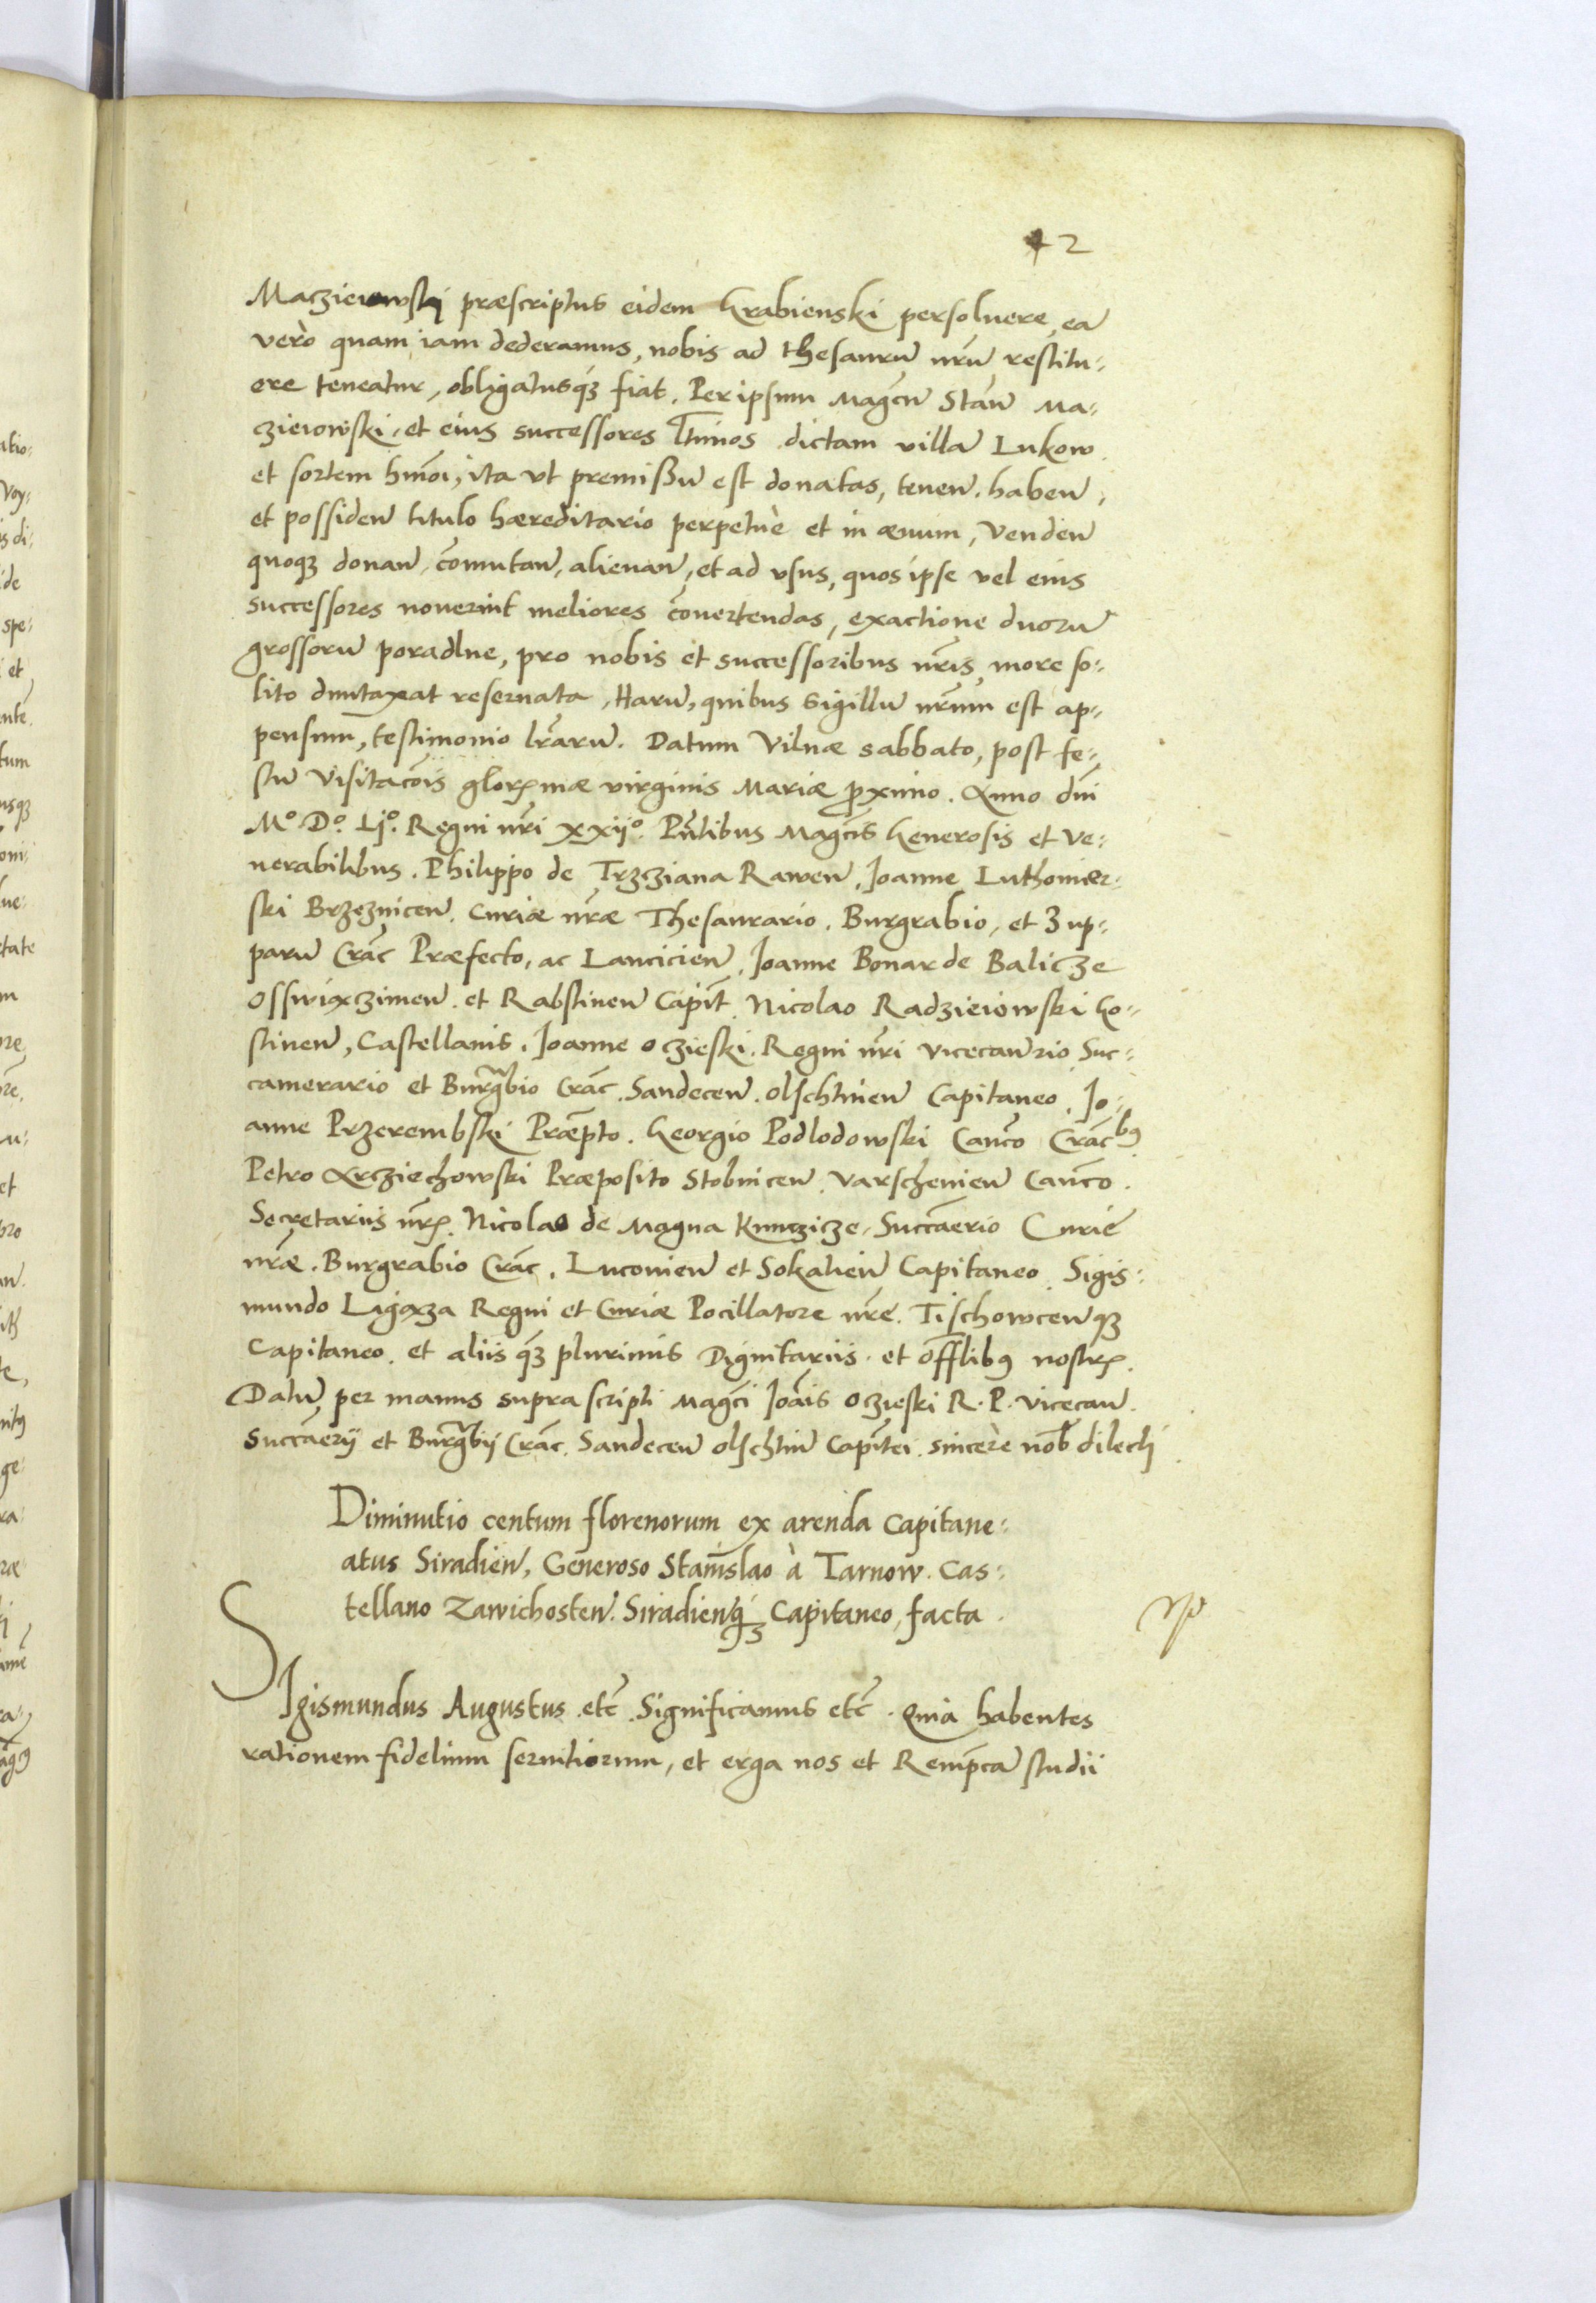 42
Maczieiowskj præscriptus eidem Grabienski persoluere, ea
verò quam iam dederamus, nobis ad thesaurū nr̄ū restitu⸗
ere teneatur, obligatusq̃ʒ fiat. Per ipsum Mag̃cū Stañ Ma⸗
czieiowski, et eius successores l̄timos dictam villā Lukow
et sortem hmōi, ita vt premissū est donatas, teneñ. habeñ,
et possideñ titulo hæreditario perpetuè et in æuum, Vendeñ
quoqʒ donañ, com̄utañ, alienañ, et ad vsus, quos ipse vel eius
successores nouerint meliores c̄ouertendas, exactione duorū
grossorū poradlne, pro nobis et successoribus nr̄is, more so⸗
lito duntaxat reseruata, Harū, quibus sigillū nr̄um est ap⸗
pensum, testimonio lr̄arū. Datum Vilnæ sabbato, post fe⸗
stū Visitac̄ois glorꝫmæ virginis Mariæ ꝓximo. Anno dn̄i
M.º D.º Lijº. Regni nr̄i xxijº. Pn̄tibus Mag̃cis Generosis et Ve⸗
nerabilibus. Philippo de Trzcziana Raweñ, Joanne Luthomier⸗
ski Brzezniceñ. Curiæ nr̄æ Thesaurario. Burgrabio, et Zup⸗
parū Crac̄ Præfecto, ac Lancicieñ, Joanne Bonar de Balicze
Osswiæczimeñ. et Rabstineñ Capit̄. Nicolao Radzieiowski Go⸗
stineñ, Castellanis. Joanne Oczieski. Regni nr̄i vicecan̄rio Suc⸗
camerario et Burgᵃbio Crac̄. Sandeceñ. Olschtineñ Capitaneo. Jo⸗
anne Przerembski Præp̄to. Georgio Podlodowski Can̄co Crac̄bꝰ
Petro Arcziechowski Præposito Stobniceñ. Varschenieñ Can̄co.
Secretariis nr̄ꝫ. Nicolao de Magna Kunczicze, Succ̄aerio Curiæ
nr̄æ. Burgrabio Crac̄. Luconieñ et Sokalieñ Capitaneo. Sigis⸗
mundo Ligæza Regni et Curiæ Pocillatore nr̄e. Tischowceñqʒ
Capitaneo. et aliis q̃ʒ plurimis Dignitariis. et off̄libꝰ nostrꝫ.
Datū per manus suprascripti Mag̃ci Joāis Oczieski R. P. Vicecañ.
Succ̄aerij et Burgᵃbij Crac̄. Sandeceñ Olschtiñ Capit̄ei. sincerè nob̄ dilecti
Diminutio centum florenorum ex arenda Capitane⸗
atus Siradieñ, Generoso Stanislao à Tarnow. Cas⸗
tellano Zawichosteñ. Siradieñq̃ʒ Capitaneo, facta.
SIgismundus Augustus etc̄. Significamus etc̄. Quia habentes
rationem fidelium seruitiorum, et erga nos et Remp̄cā studii